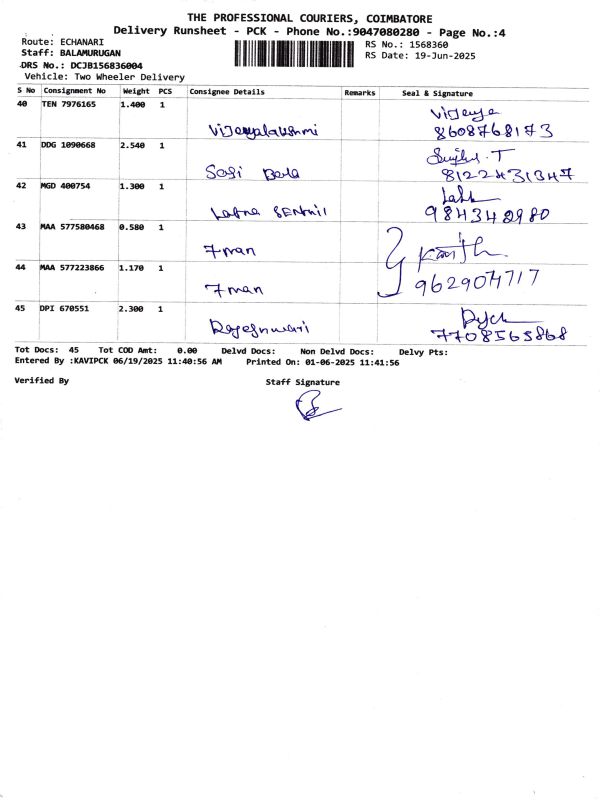 THE PROFESSIONAL COURIERS, COIMBATORE
Delivery Runsheet - PCK - Phone No.:9047080280 - Page No.:4
Route: ECHANARI
RS No.: 1568360
Staff: BALAMURUGAN
RS Date: 19-Jun-2025
DRS No.: DCJB156836004
Vehicle: Two Wheeler Delivery
S No Consignment No Weight PCS Consignee Details Remarks Seal & Signature
40 TEN 7976165 1.400 1
Vijaya
Vijayalakshmi 8608768173
41 DDG 1090668 2.540 1
Sasi Bala 8122431347
42 MGD 400754 1.300 1
Latha SENthil 984342980
43 MAA 577580468 0.580 1
7man
44 MAA 577223866 1.170 1
7man 962904717
45 DPI 670551 2.300 1
Rajeshwari 7708565868
Tot Docs: 45 Tot COD Amt: 0.00 Delvd Docs: Non Delvd Docs: Delvy Pts:
Entered By :KAVIPCK 06/19/2025 11:40:56 AM Printed On: 01-06-2025 11:41:56
Verified By Staff Signature